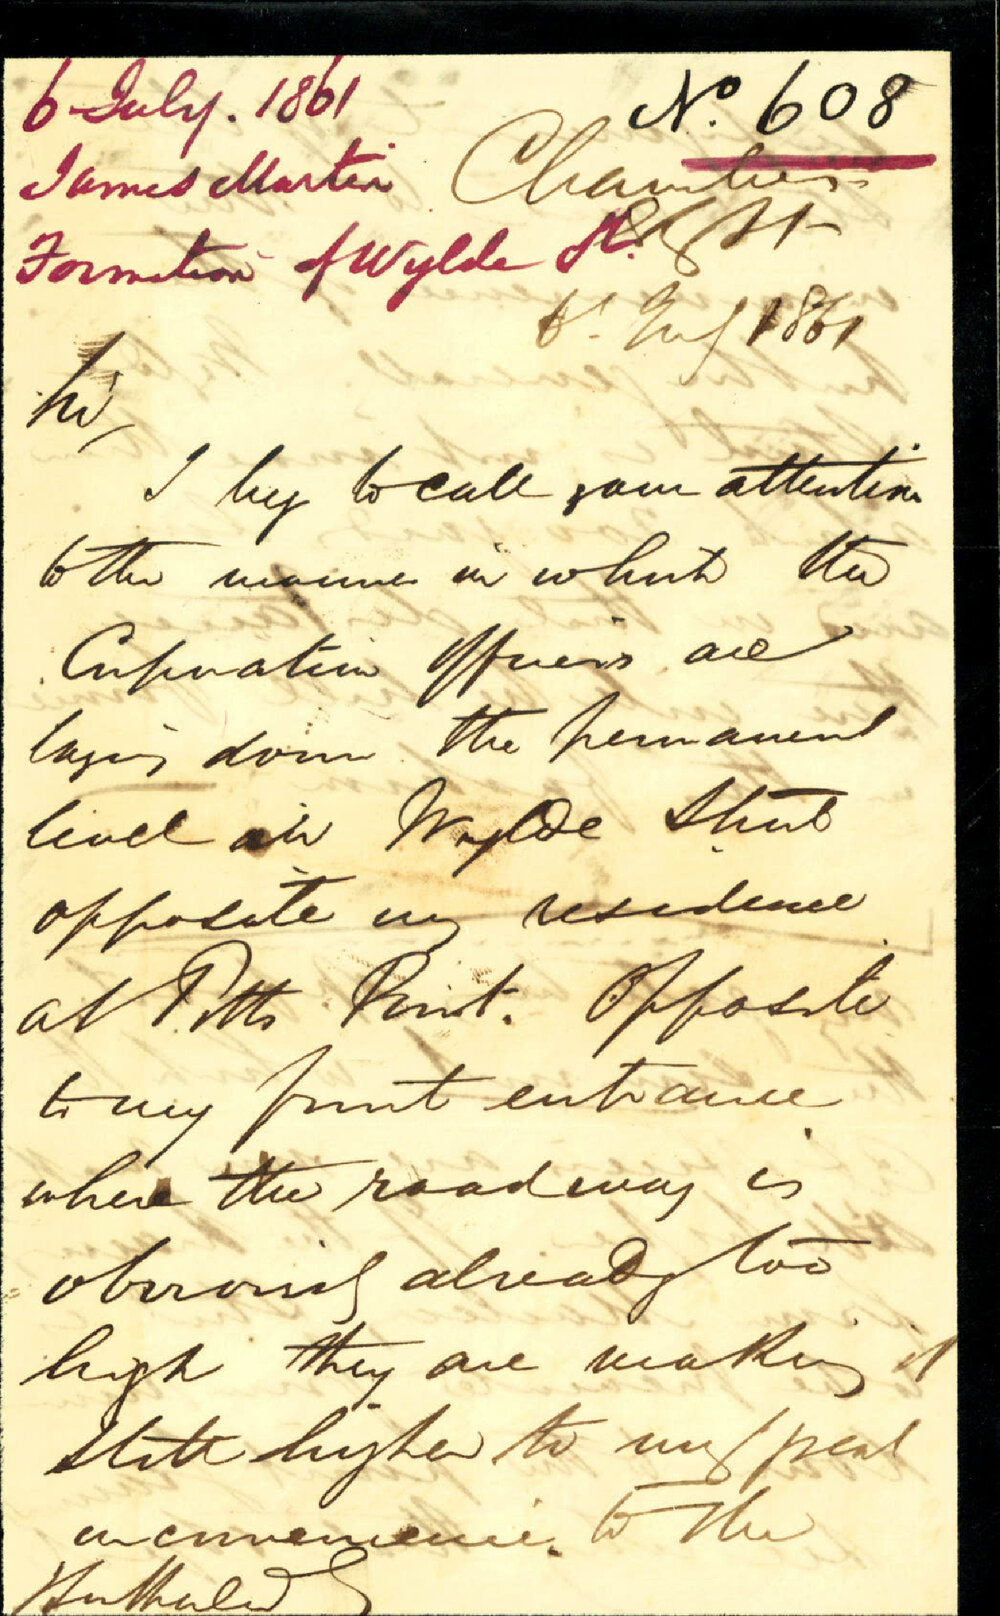 6 July. 1861
No. 608
James Martin
Chambers
Formation of Wylde St.
6th July 1861
Sir,
I beg to call your attention
to the manner in which the
Corporation Officers are
laying down the permanent
level in Wylde Street
opposite my residence
at Potts Point. Opposite
to my front entrance
where the roadway is
obviously already too
high they are making it
still higher to my great
inconvenience. to the